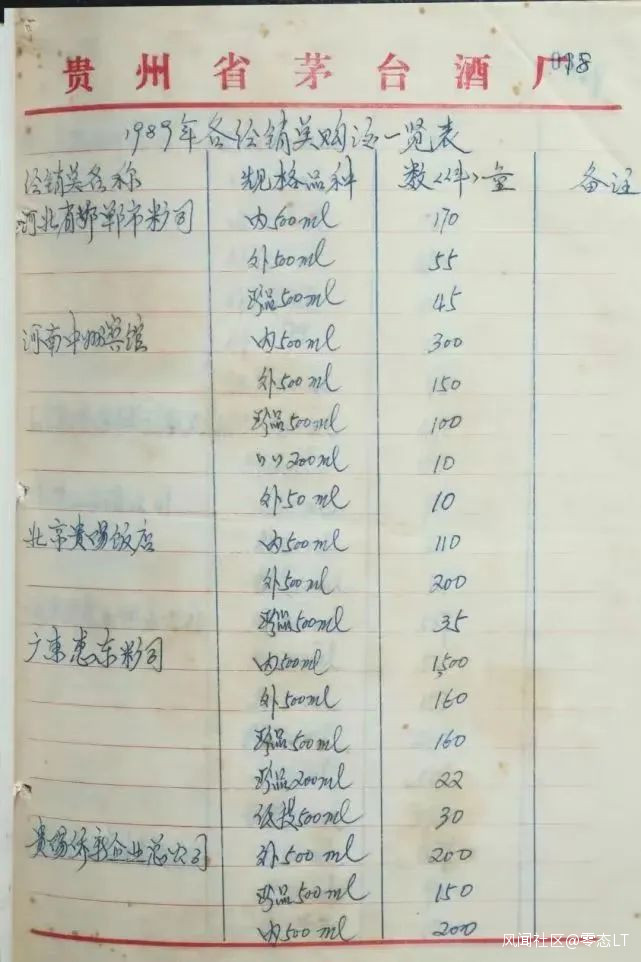 贵州省茅台酒厂 098
1989年各经销单购酒一览表
经销单名称 规格品种 数(件)量 备注
河北省邯郸市糖司 内500ml 170
外500ml 55
珍品500ml 45
河南中州宾馆 内500ml 300
外500ml 150
珍品500ml 100
〃〃200ml 10
外50ml 10
北京贵阳饭店 内500ml 110
外500ml 200
珍品500ml 35
广东惠东糖司 内500ml 1500
外500ml 160
珍品500ml 160
珍品200ml 22
500ml 30
贵阳侨新企业总公司 外500ml 200
珍品500ml 150
内500ml 200
风闻社区@零态LT